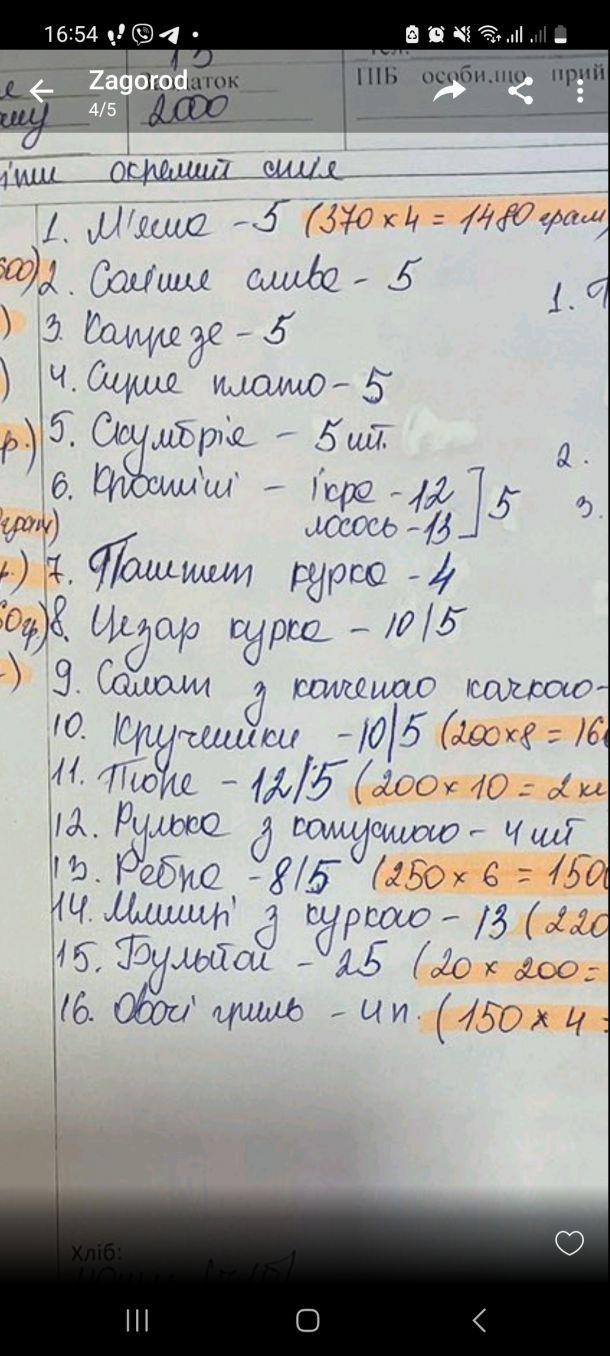 16:54
Zagorod
4/5
Задаток
2000
ПІБ особи,що прий
окремий
1. М'ясна - 5 (370 х 4 = 1480 грам)
2. Солінне слива - 5
1.
3. Капрезе - 5
4. Сирне плато - 5
5. Скумбрія - 5 шт.
2.
6. Кростіні - ікра - 12 ] 5
3.
лосось - 13
7. Паштет курка - 4
8. Цезар курка - 10/5
9. Салат з копченою качкою -
10. Крученики - 10/5 (200х8 = 16
11. Пюре - 12/5 (200х 10 = 2 кг
12. Рулька з капустою - 4 шт
13. Ребра - 8/5 (250 х 6 = 150
14. Млинці з куркою - 13 (220
15. Бульйон - 25 (20 х 200 =
16. Овочі гриль - 4 п. (150 х 4 =
Хліб: